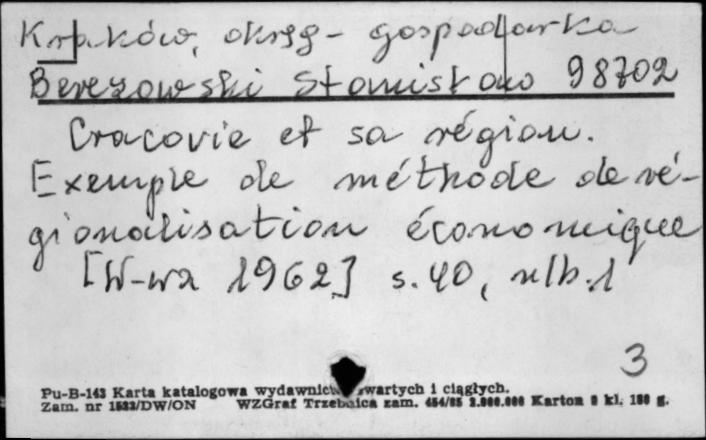 Kraków, okręg - gospodarka
Berezowski Stanisław 98702
Cracovie et sa région.
Exemple de méthode de ré-
gionalisation économique
[W-wa 1962] s. 40, nlb. 1
3
Pu-B-143 Karta katalogowa wydawnictw zwartych i ciągłych.
Zam. nr 1523/DW/ON WZGraf Trzebnica zam. 454/85 Karton kl. g.